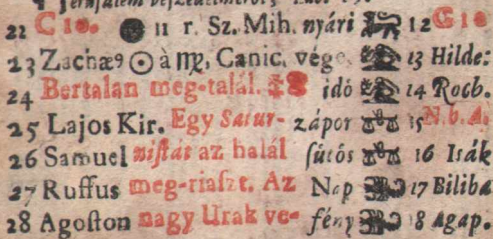 22 C 10. ● 11 r. Sz. Mih. nyári 12 G 10
23 Zachæ9 ☉ à ♍, Canic. vége. 13 Hilde:
24 Bertalan meg-talál. idö 14 Roch.
25 Lajos Kir. Egy Satur- zápor 15 N. b. A.
26 Samuel niſtát az halál ſütös 16 Isák
27 Ruffus meg-riaſzt. Az Nap 17 Biliba
28 Agoſton nagy Urak ve- fény 18 Agap.